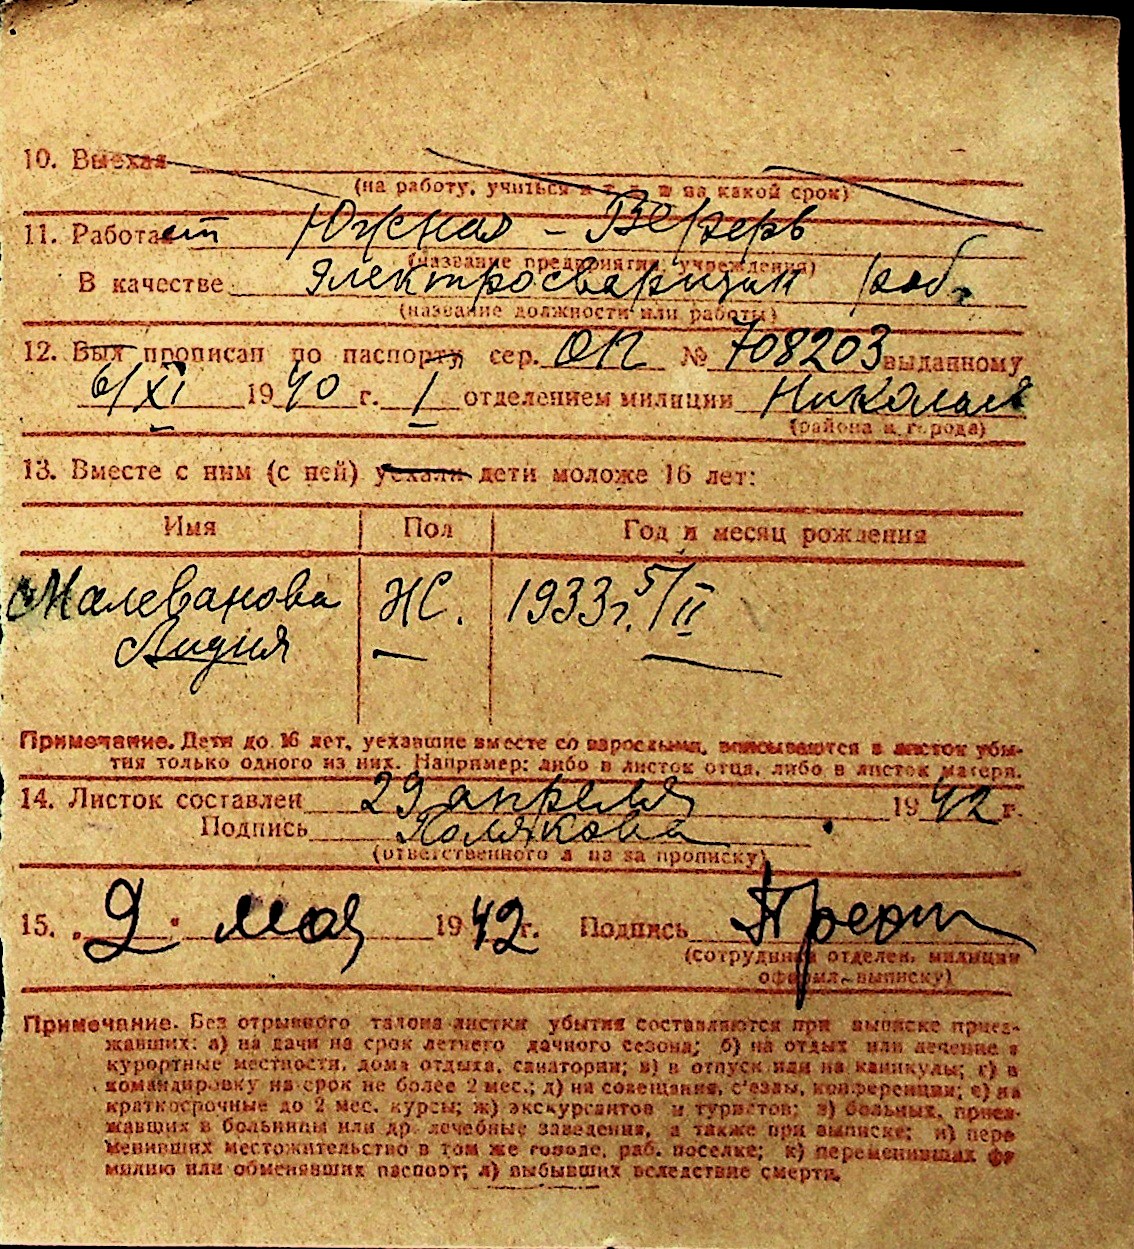 10. Выехал
(на работу, учиться и т. п. и на какой срок)
11. Работает Южная - Верферь
(название предприятия, учреждения)
В качестве Электросварщик раб.
(название должности или работы)
12. Был прописан по паспорту сер. ОП № 708203 выданному
6/XI 1940 г. I отделением милиции Николаев
(района и города)
13. Вместе с ним (с ней) уехали дети моложе 16 лет:
Имя Пол Год и месяц рождения
Малеванова Ж. 1933г. 5/II
Лидия
Примечание. Дети до 16 лет, уехавшие вместе со взрослыми, вписываются в листок убы-
тия только одного из них. Например: либо в листок отца, либо в листок матери.
14. Листок составлен 29 апреля 1942 г.
Подпись Полякова
(ответственного л на за прописку)
15. „2" мая 1942 г. Подпись
(сотрудника отделен. милиции
оформл. выписку)
Примечание. Без отрывного талона листки убытия составляются при выписке приез-
жавших: а) на дачи на срок летнего дачного сезона; б) на отдых или лечение в
курортные местности, дома отдыха, санатории; в) в отпуск или на каникулы; г) в
командировку на срок не более 2 мес.; д) на совещания, с'езды, конференции; е) на
краткосрочные до 2 мес. курсы; ж) экскурсантов и туристов; з) больных, приез-
жавших в больницы или др. лечебные заведения, а также при выписке; и) пере
менивших местожительство в том же городе, раб. поселке; к) переменивших фа
милию или обменявших паспорт; л) выбывших вследствие смерти.